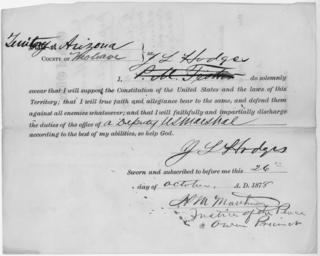 Territory of Arizona
County of Mohave } ss
J L Hodges
I, do solemnly
swear that I will support the Constitution of the United States and the laws of this
Territory; that I will true faith and allegiance bear to the same, and defend them
against all enemies whatsoever; and that I will faithfully and impartially discharge
the duties of the office of a Deputy US Marshal
according to the best of my abilities, so help God.
J L Hodges
Sworn and subscribed to before me this 26th
day of October, A. D. 1878
Justice of the Peace
Owens Precinct